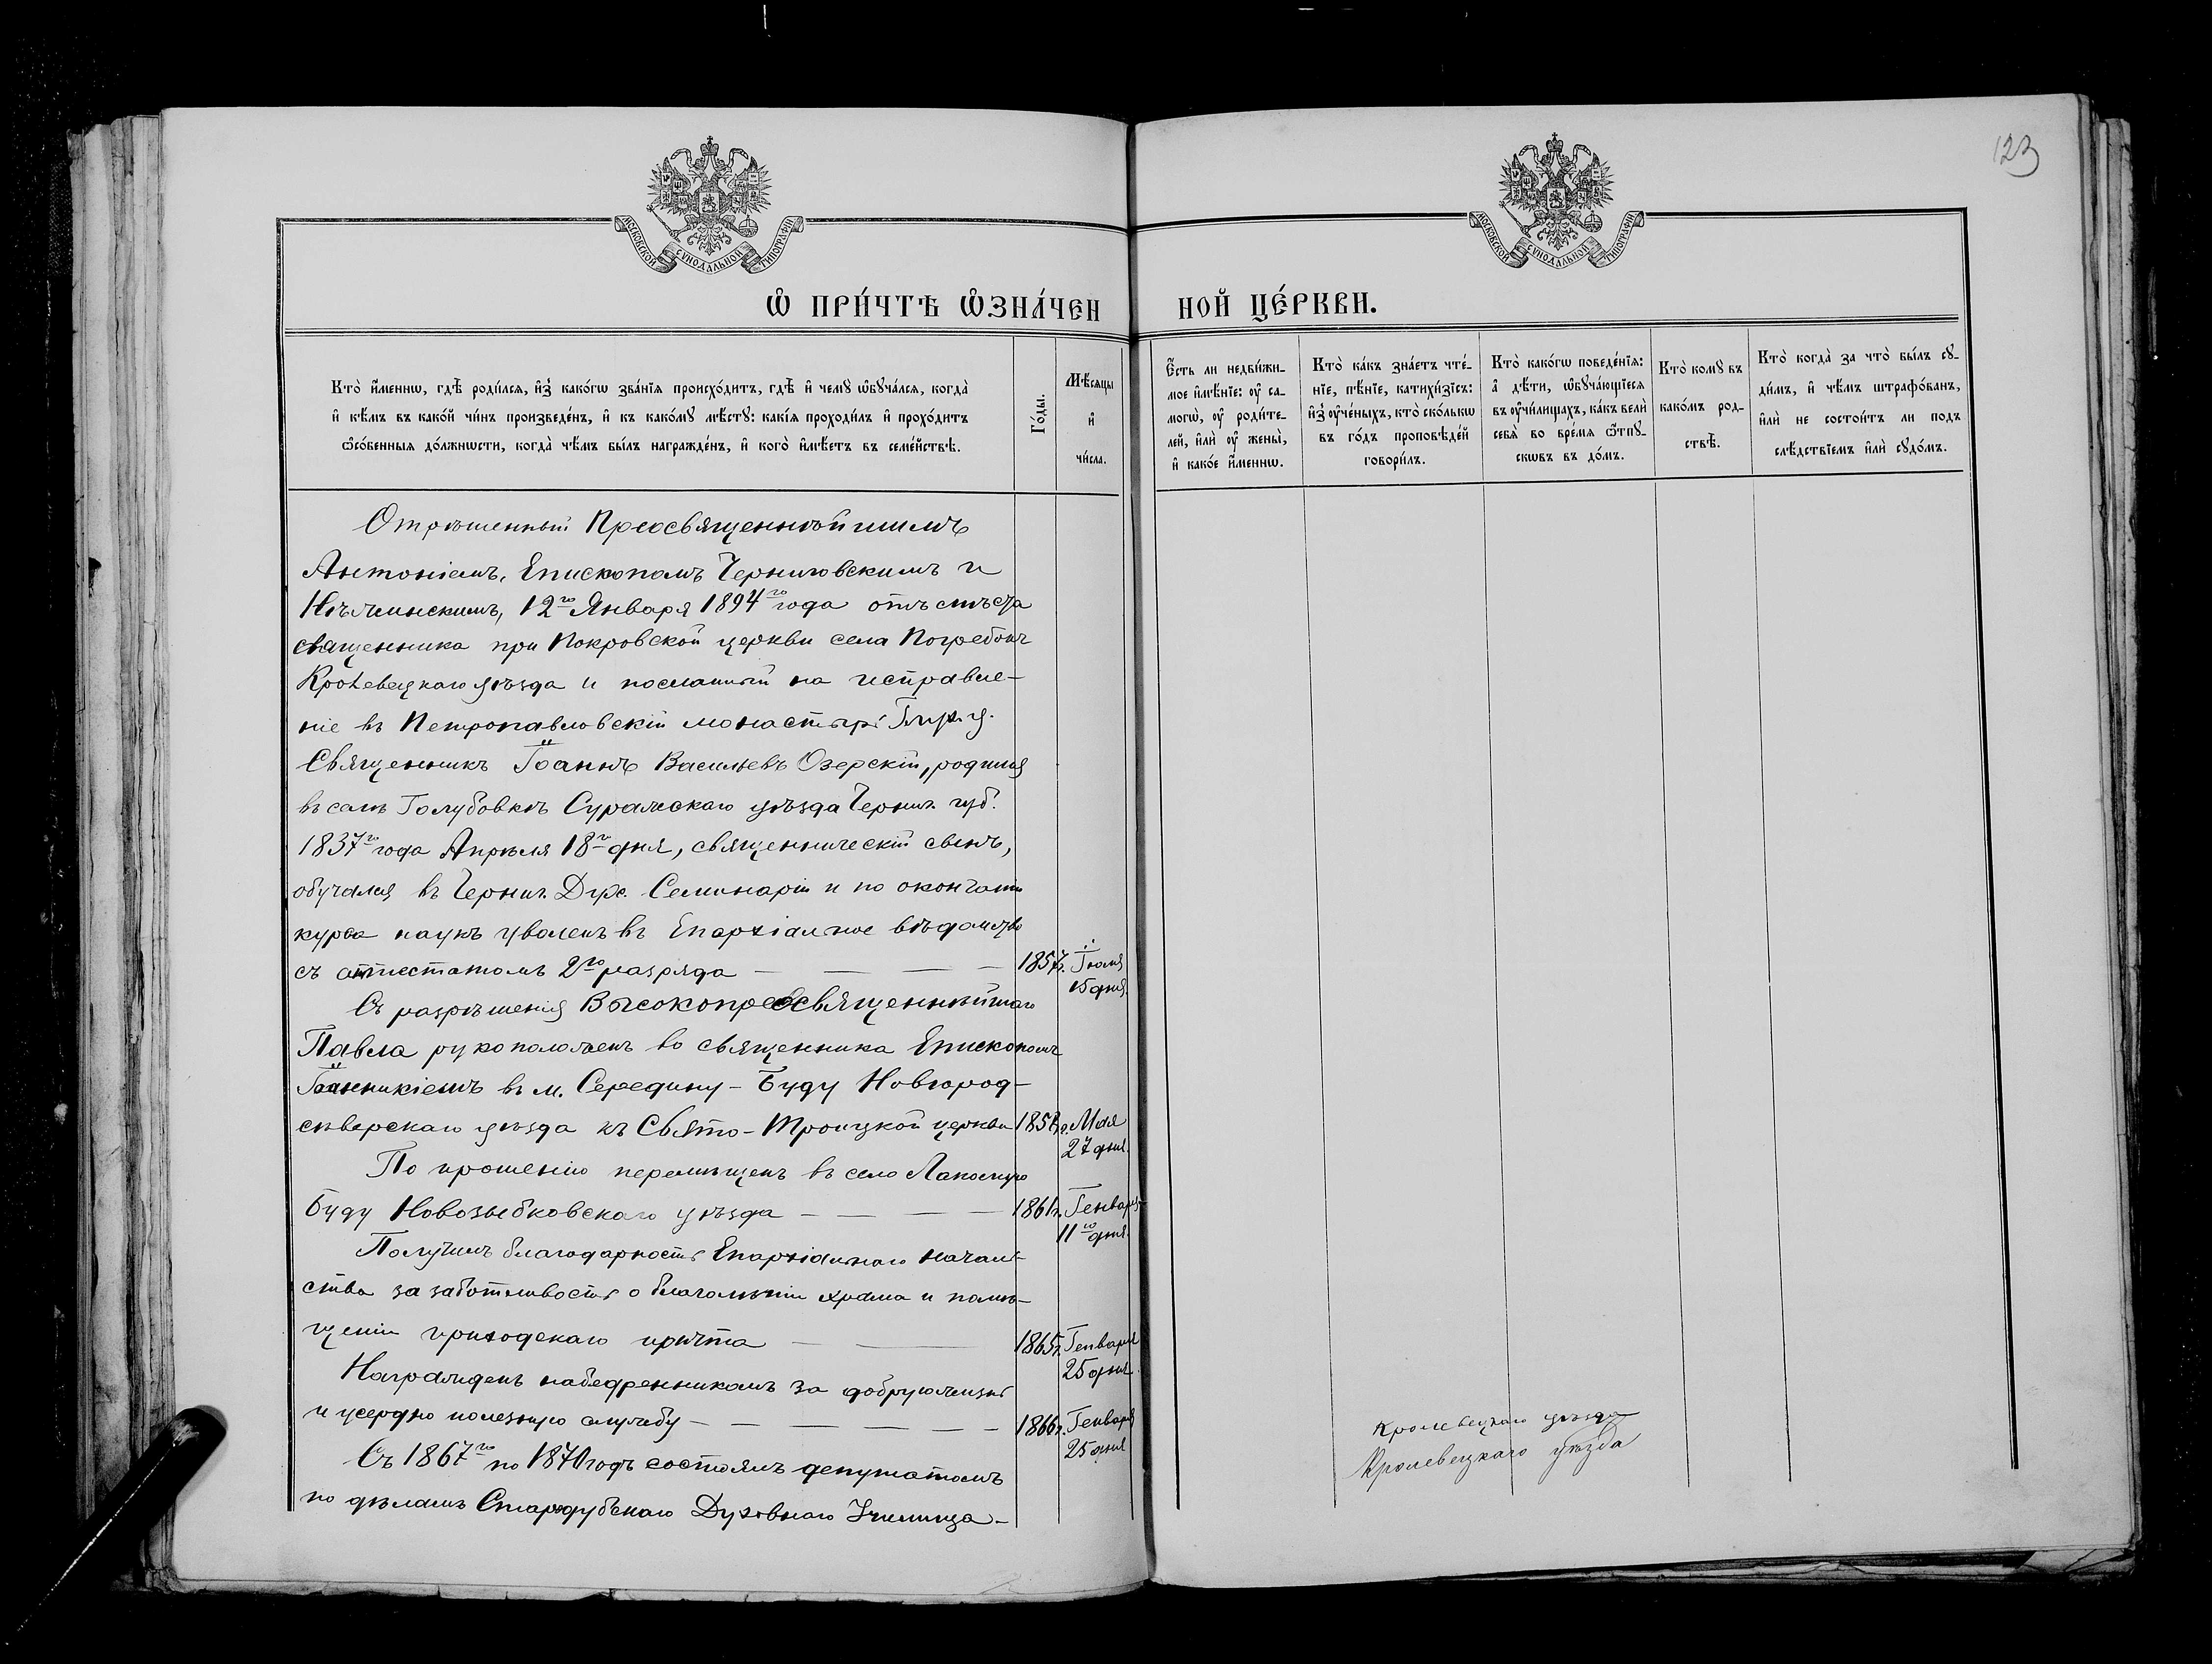 123
МОСКОВСКОЙ СѴНОДАЛЬНОЙ ТИПОГРАФІИ
МОСКОВСКОЙ СѴНОДАЛЬНОЙ ТИПОГРАФІИ
Ѡ ПРИ́ЧТѢ ѠЗНА́ЧЕН НОЙ ЦЕ́РКВИ.
Кто̀ и҆́меннѡ, гдѣ̀ роди́лся, и҆з̾ како́гѡ зва́нїя происхо́дитъ, гдѣ̀ и҆ чемꙋ̀ ѡ҆бꙋча́лся, когда̀
и҆ кѣ́мъ въ како́й чи́нъ произведе́нъ, и҆ къ како́мꙋ мѣ́стꙋ: какі́я проходи́лъ и҆ прохо́дитъ
ѻ҆со́бенныя до́лжнѡсти, когда̀ чѣ́мъ бы́лъ награжде́нъ, и҆ кого̀ и҆мѣ́етъ въ семе́йствѣ.
Го́ды.
Мѣ́сяцы
и҆
чи́сла.
Є҆́сть ли недви́жи-
мое и҆мѣ́нїе: ᲂу҆ са-
могѡ̀, ᲂу҆ роди́те-
лей, и҆лѝ ᲂу҆ жены̀,
и҆ како́е и҆́меннѡ.
Кто̀ ка́къ зна́етъ чте́-
нїе, пѣ́нїе, катихи́зїсъ:
и҆з̾ ᲂу҆че́ныхъ, кто̀ ско́лькѡ
въ го́дъ проповѣ́дей
говори́лъ.
Кто̀ како́гѡ поведе́нїя:
а҆ дѣ́ти, ѡ҆бꙋча́ющїеся
въ ᲂу҆чи́лищахъ, ка́къ велѝ
себѐ во вре́мя ѿпꙋ-
скѡвъ въ до́мъ.
Кто̀ комꙋ̀ въ
како́мъ род-
ствѣ̀.
Кто̀ когда̀ за что̀ бы́лъ сꙋ-
ди́мъ, и҆ чѣ́мъ штрафо́ванъ,
и҆лѝ не состои́тъ ли подъ
слѣ́дствїемъ и҆лѝ сꙋдо́мъ.
Отрѣшенный Преосвященнѣйшимъ
Антоніемъ, Епископомъ Черниговскимъ и
Нѣжинскимъ, 12го Января 1894го года отъ мѣста
священника при Покровской церкви села Погребокъ
Кролевецкаго уѣзда и посланный на исправле-
ніе въ Петропавловскій монастырь Глух. у.
Священникъ Іоаннъ Васильевъ Озерскій, родился
въ селѣ Голубовкѣ Суражскаго уѣзда Черниг. губ.
1837го года Апрѣля 18го дня, священническій сынъ,
обучался въ Черниг. Дух. Семинаріи и по окончаніи
курса наукъ уволенъ въ Епархіальное вѣдомство
съ аттестатомъ 2го разряда — — — — 1857г. Іюля
15 дня.
Съ разрѣшенія Высокопреосвященнѣйшаго
Павла рукоположенъ во священника Епископомъ
Іоанникіемъ въ м. Середину-Буду Новгород-
сѣверскаго уѣзда къ Свято-Троицкой церкви 1858г. Мая
27 дня.
По прошенію перемѣщенъ въ село Лакомую
Буду Новозыбковскаго уѣзда — — — — 1861г. Генваря
11го дня.
Получилъ благодарность Епархіальнаго началь-
ства за заботливость о благолѣпіи храма и помѣ-
щеніи приходскаго причта — — 1865г. Генваря
25 дня.
Награжденъ набедренникомъ за добрую жизнь
и усердно полезную службу — — — — — 1866г. Генваря
25 дня
Съ 1867го по 1870 годъ состоялъ депутатомъ
по дѣламъ Стародубскаго Духовнаго Училища —
Кролевецкаго уѣзда
Кролевецкаго уѣзда